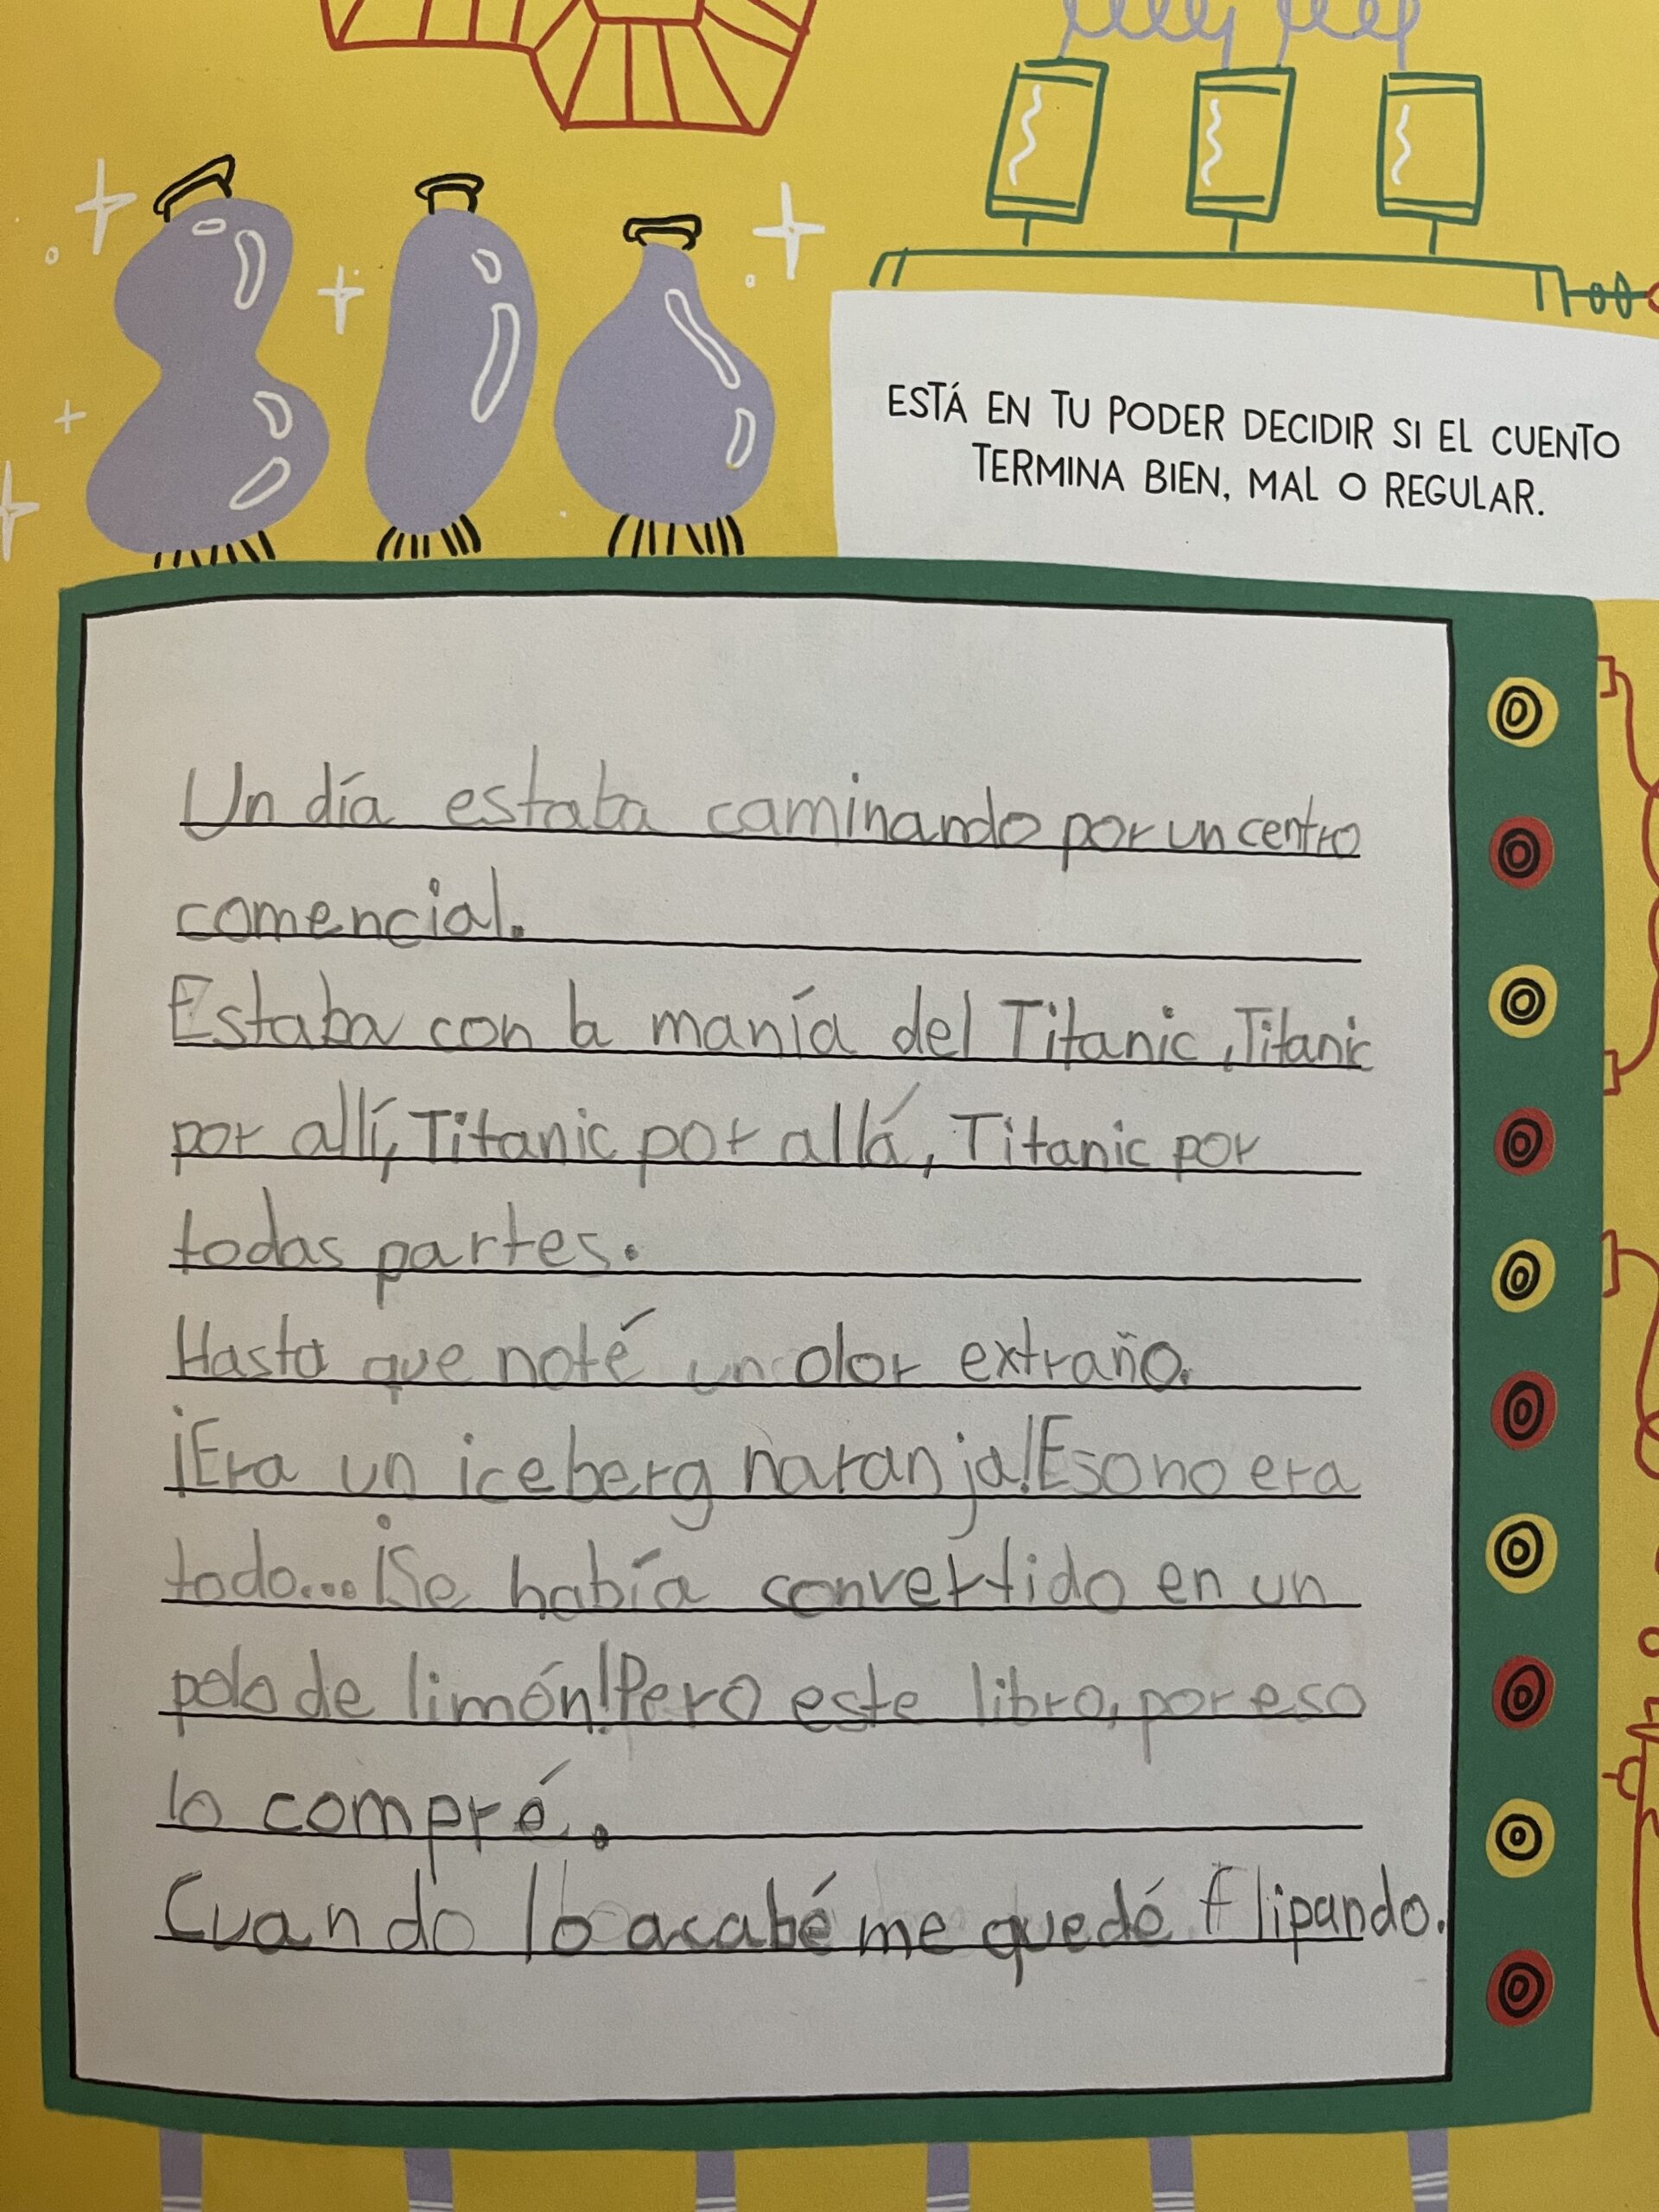 ESTÁ EN TU PODER DECIDIR SI EL CUENTO
TERMINA BIEN, MAL O REGULAR.
Un día estaba caminando por un centro
comencial.
Estaba con la manía del Titanic, Titanic
por allí, Titanic por allá, Titanic por
todas partes.
Hasta que noté un olor extraño.
¡Era un iceberg naranja! Eso no era
todo... ¡Se había convertido en un
polo de limón! Pero este libro, por eso
lo compré.
Cuando lo acabé me quedé flipando.